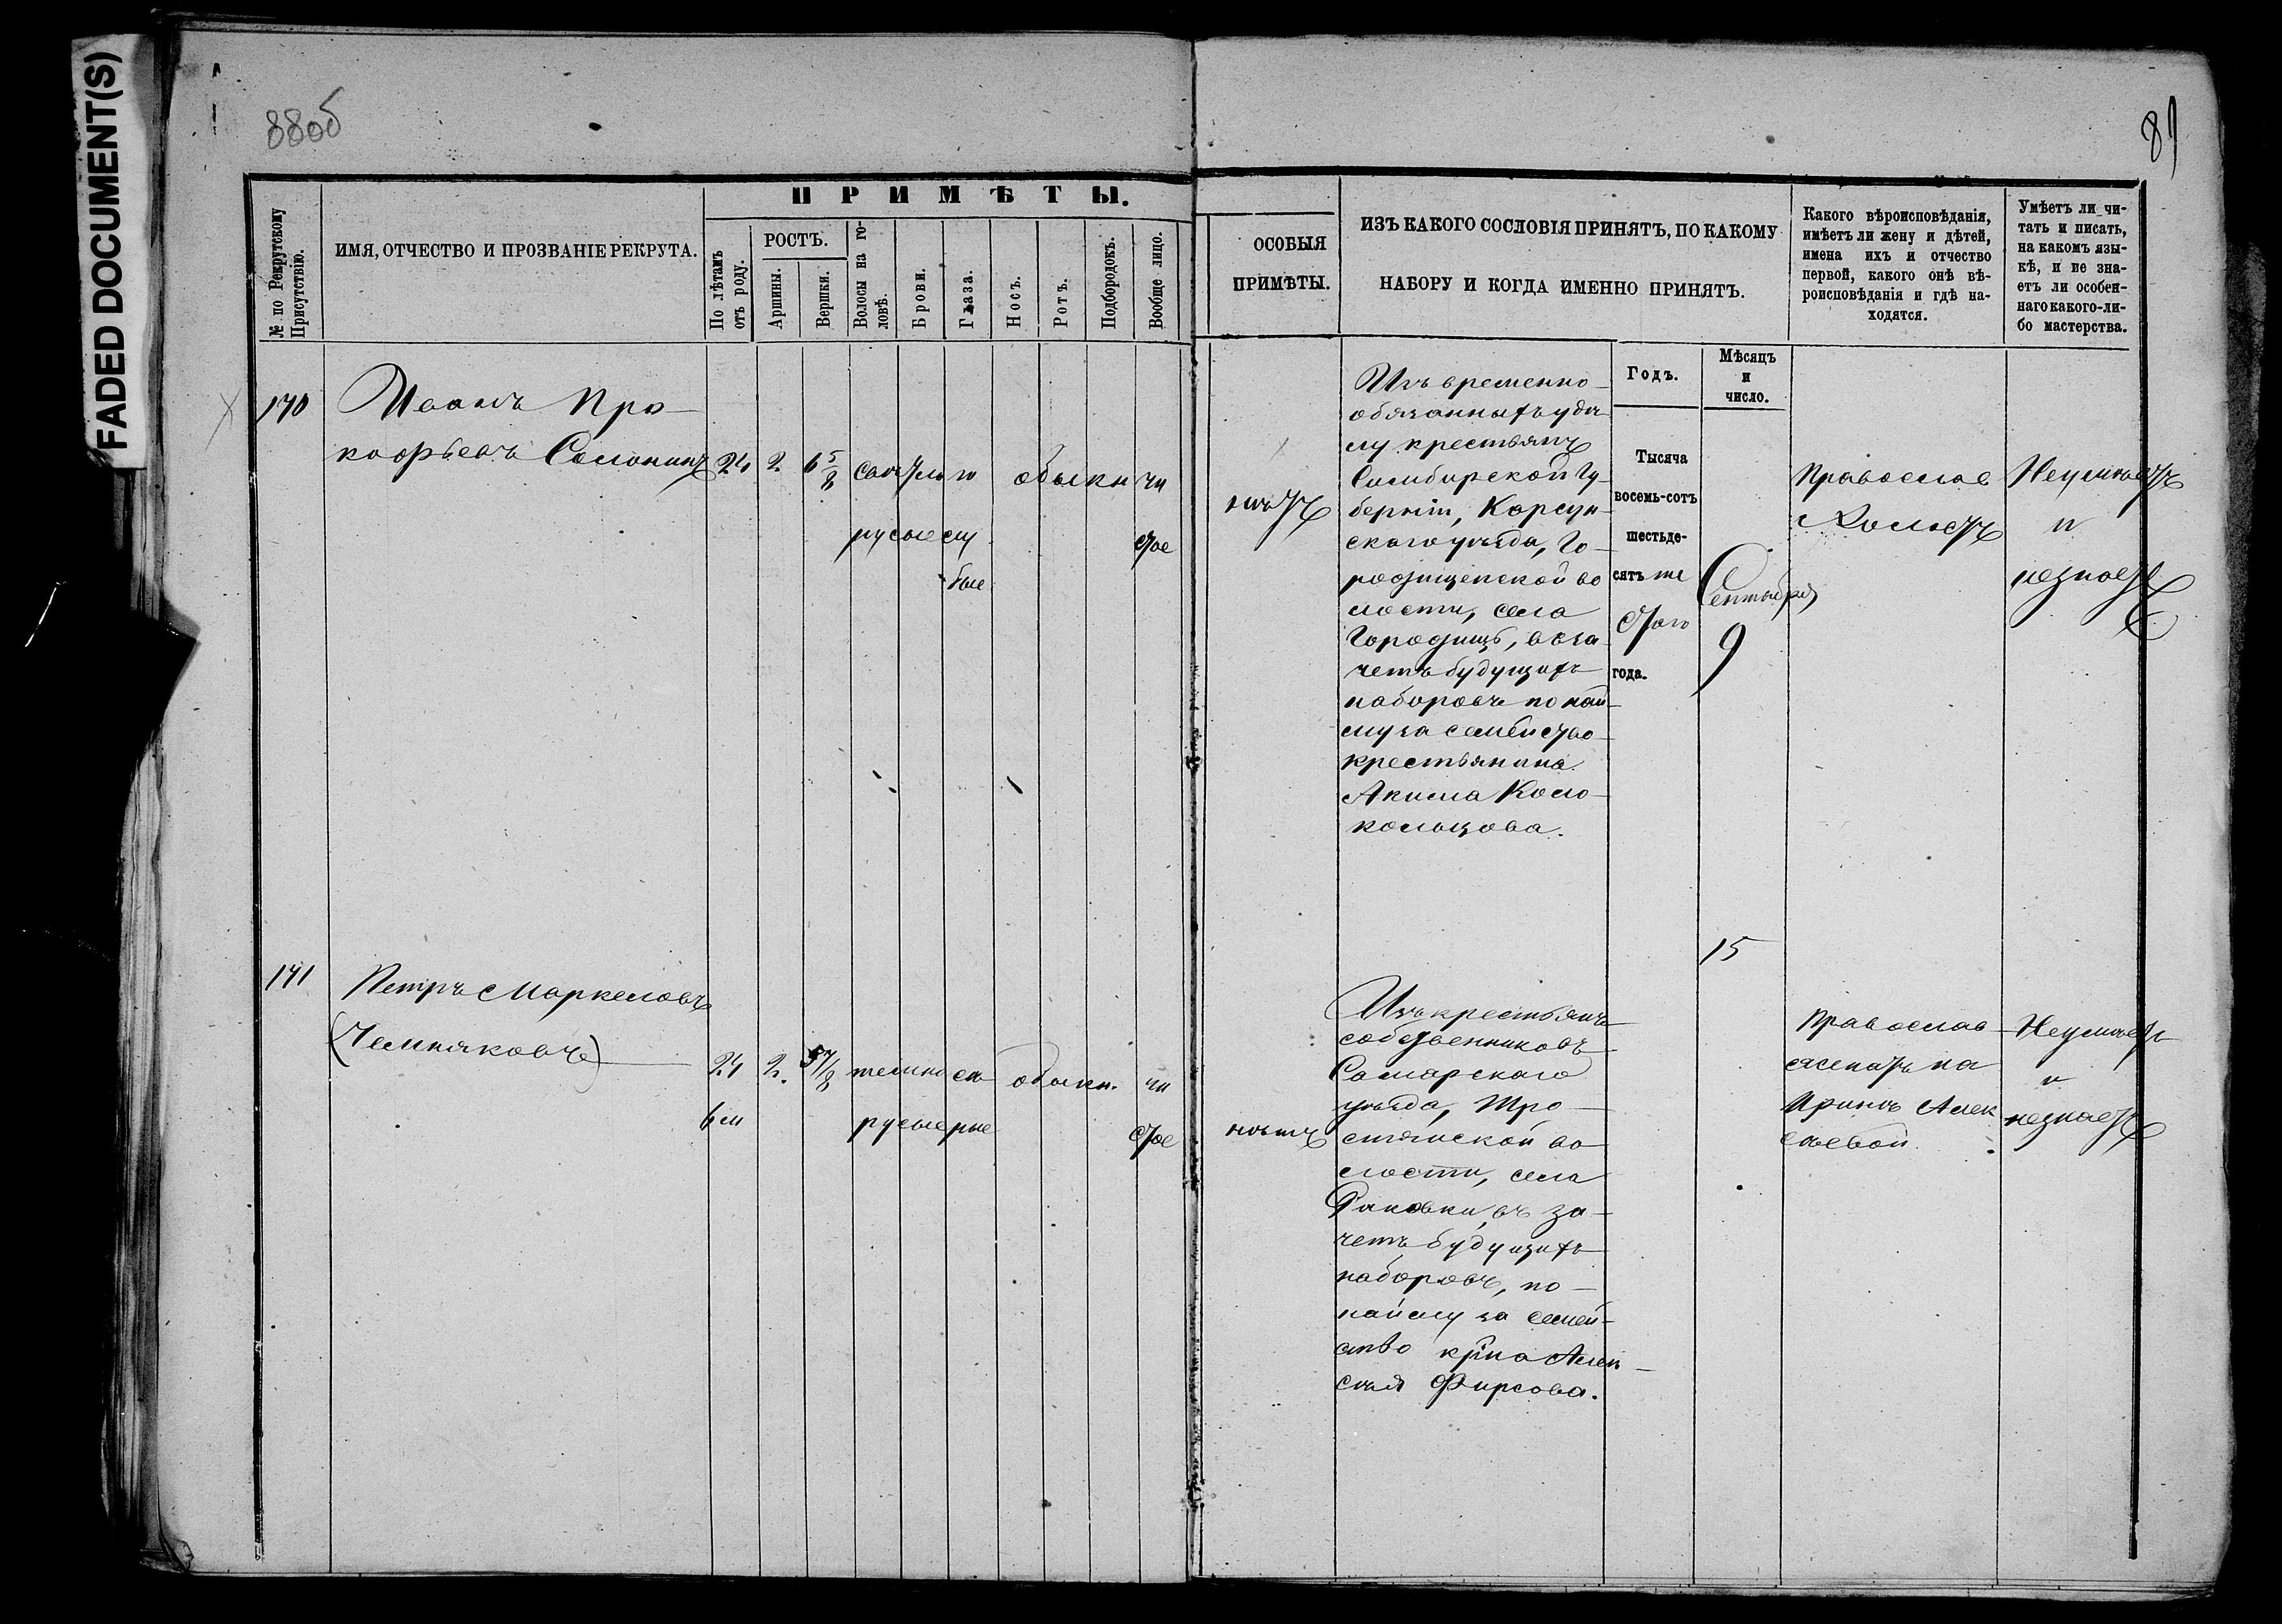 FADED DOCUMENT(S)
88об
89
№ по Рекрутскому Присутствію.
ИМЯ, ОТЧЕСТВО И ПРОЗВАНІЕ РЕКРУТА.
ПРИМѢТЫ.
По лѣтамъ отъ роду.
РОСТЪ.
Аршины.
Вершки.
Волосы на головѣ.
Брови.
Глаза.
Носъ.
Ротъ.
Подбородокъ.
Вообще лицо.
ОСОБЫЯ
ПРИМѢТЫ.
ИЗЪ КАКОГО СОСЛОВІЯ ПРИНЯТЪ, ПО КАКОМУ
НАБОРУ И КОГДА ИМЕННО ПРИНЯТЪ.
Какого вѣроисповѣданія,
имѣетъ ли жену и дѣтей,
имена ихъ и отчество
первой, какого онѣ вѣ-
роисповѣданія и гдѣ на-
ходятся.
Умѣетъ ли чи-
тать и писать,
на какомъ язы-
кѣ, и не зна-
етъ ли особен-
наго какого-ли-
бо мастерства.
Годъ.
Мѣсяцъ
и
число.
170
Иванъ Про-
кофьевъ Солонинъ
24 2 6 5/8
свѣтло
русые
го
лу
бые
обыкн
чи
стое
нѣтъ
Изъ временно-
обязанныхъ удѣ
лу крестьянъ
Симбирской Гу-
берніи, Карсун-
скаго уѣзда, Го-
родищенской во
лости, села
Городищъ, въ за-
четъ будущихъ
наборовъ по най-
му за семейство
крестьянина
Акима Коло-
кольцова.
Тысяча
восемь-сотъ
шестьде-
сятъ ше
стого
года.
Сентября
9
Православ
Холостъ
Неумѣетъ
и
незнаетъ
171
Петръ Маркеловъ
(Чемняковъ)
24
6 м
2. 5 7/8
темно
русые
сѣ
рые
обыкн.
чи
стое
нѣтъ
15
Изъ крестьянъ
собственниковъ
Самарскаго
уѣзда, Тро-
стянской во
лости, села
Раковки, въ за-
четъ будущихъ
наборовъ, по-
найму за семей-
ство кр-на Алек-
сѣя Фирсова.
Православ
женатъ на
Иринѣ Алек
сѣевой.
Неумѣетъ
и
незнаетъ